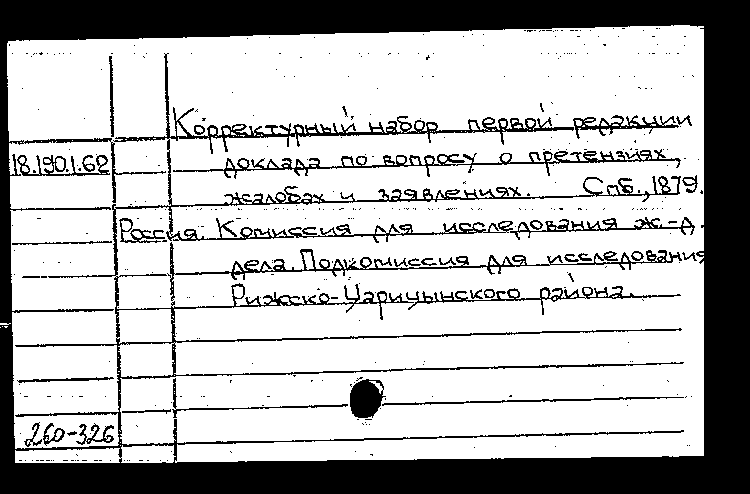 Корректурный набор первой редакции
18.190.1.62 доклада по вопросу о претензиях,
жалобах и заявлениях. Спб., 1879.
Россия. Комиссия для исследования ж.-д.
дела. Подкомиссия для исследования
Рижско-Царицынского района.
260-326